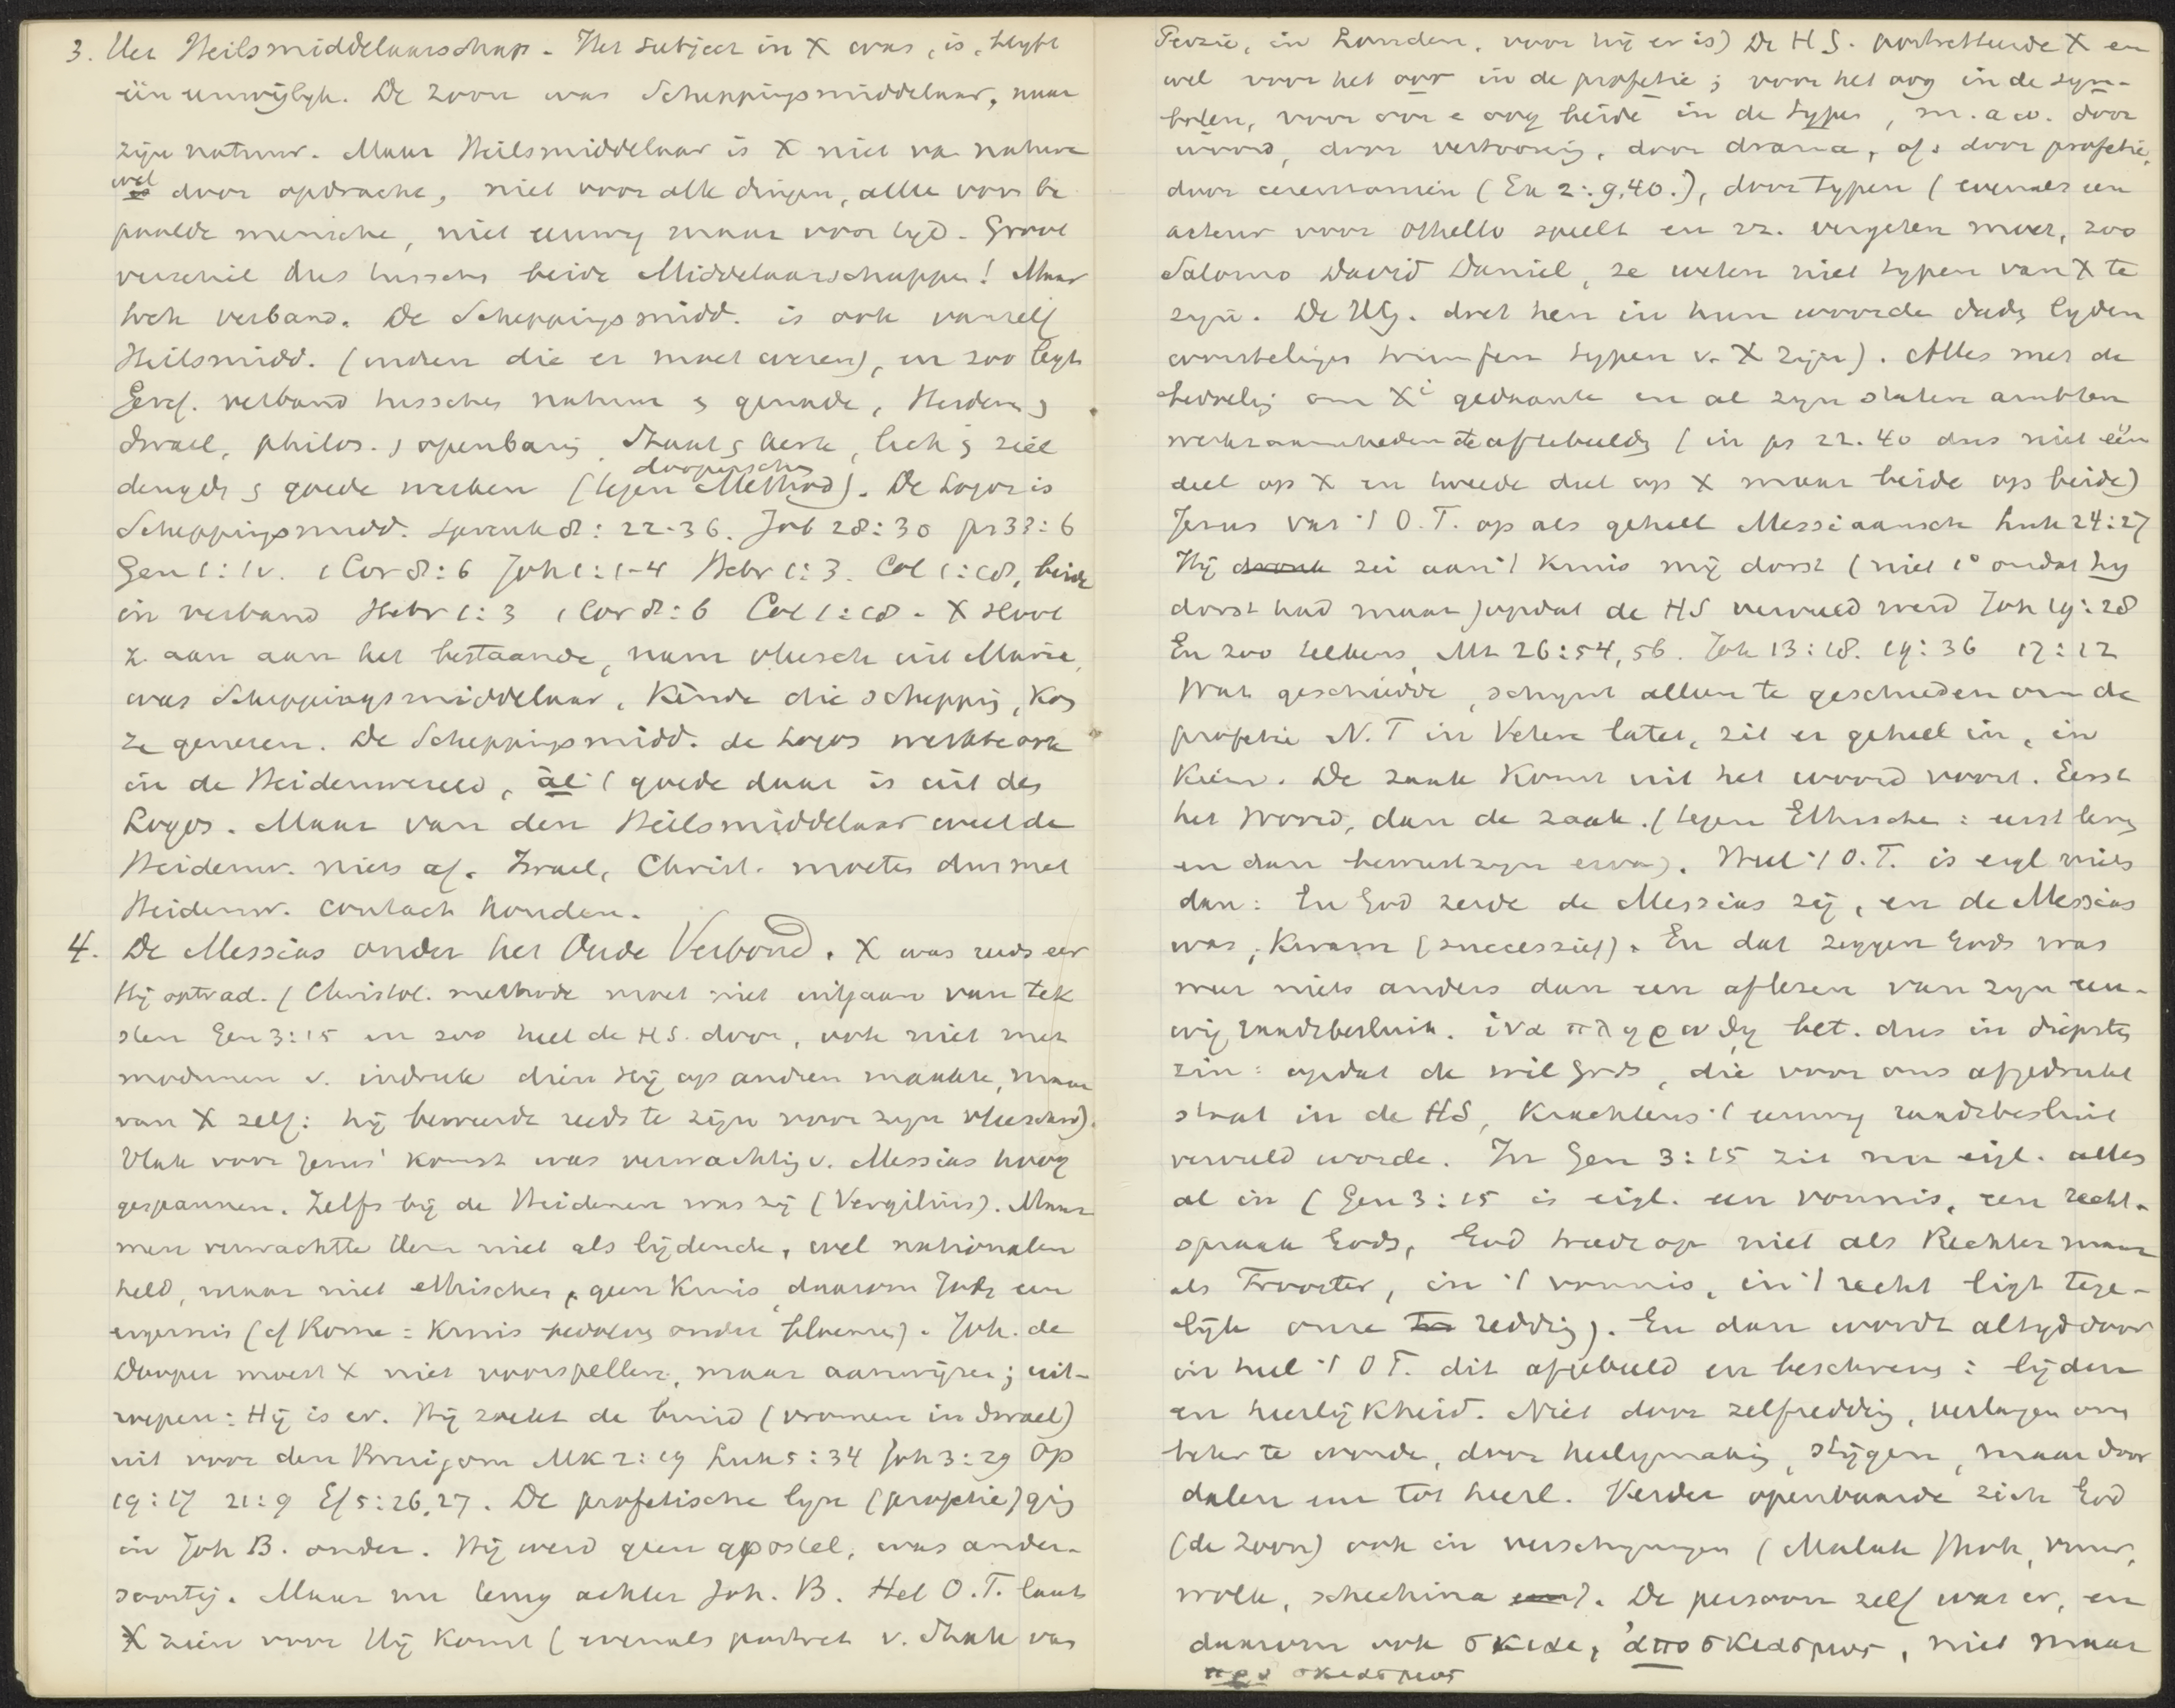 3. Het Heilsmiddelaarschap. Het subject in X was, is, blyft
één eeuwiglyk. De Zoon was Scheppingsmiddelaar, naar
zijn natuur. Maar Heilsmiddelaar is X niet van nature
wel door opdracht, niet voor alle dingen, alle voor be
paalde mensche, niet eeuwig maar voor tyd. Groot
verschil dus tusschen beide Middelaarschappen! Maar
toch verband. De Scheppingsmidd. is ook vanzelf
Heilsmidd. (indien die er moet wezen), en zoo legt
Geref. verband tusschen natuur & genade, Heidenen &
Israel, philos. & openbaring, Staat & kerk, lich & ziel
deugden & goede werken (tegen doopersche Method). De Logos is
Scheppingsmidd. Spreuk 8: 22-36. Job 28:30 ps 33:6
Gen 1:1v. 1 Cor 8:6 Joh 1:1-4 Hebr 1:3. Col 1:18, beide
in verband Hebr 1:3 1 Cor 8:6 Col 1:18. X sloot
z. aan aan het bestaande, nam vleesch uit Maria,
was Scheppingsmiddelaar, Kende die schepping, Kon
ze genezen. De Scheppingsmidd. de Logos werkte ook
in de Heidenwereld, al 't goede daar is uit den
Logos. Maar van den Heilsmiddelaar weet de
Heidenw. niets af. Israel, Christ. moeten dus met
Heidenw. contact houden.
4. De Messias onder het Oude Verbond. X was reeds eer
Hij optrad. (Christol. methode moet niet uitgaan van tek
sten Gen 3:15 en zoo heel de H.S. door, ook niet met
modernen v. indruk dien Hij op andren maakte, maar
van X zelf: hij beweerde reeds te zijn voor zijn vleeschw).
Vlak voor Jezus' komst was verwachting v. Messias hoog
gespannen. Zelfs bij de Heidenen was zij (Vergilius). Maar
men verwachtte Hem niet als lijdende, wel nationalen
held, maar niet ethischen, geen Kruis, daarom Joden een
ergernis (cf Rome = Kruis bedolven onder bloemen). Joh. de
Dooper moest X niet voorspellen, maar aanwijzen; uit-
roepen: Hij is er. Hij zoekt de bruid (vromen in Israel)
uit voor den Bruigom Mk 2:19 Luk 5:34 Joh 3:29 Op
19:17 21:9 Ef 5:26,27. De profetische lyn (profetie) ging
in Joh B. onder. Hij werd geen apostel, was ander-
soortig. Maar nu terug achter Joh. B. Het O.T. laat
X zien voor Hij Komt (evenals portret v. Shah van
Perzië, in Londen, voor hij er is) De H S. portretteerde X en
wel voor het oor in de profetie; voor het oog in de sym-
bolen, voor oor e oog beide in de typen, m.a.w. door
woord, door vertooning, door drama, of: door profetie,
door ceremoniën (Ex 2:9,40.), door typen (evenals een
acteur voor Othello speelt en zz. vergeten moet, zoo
Salomo David Daniel, ze weten niet typen van X te
zijn. De HG. doet hen in hun woorden daden lyden
worstelingen triumfen typen v. X zijn). Alles met de
bedoeling om Xi gedaante en al zyn staten ambten
werkzaamheden te aftebeelden (in ps 22. 40 dus niet één
deel op X en tweede deel op X maar beide op beide)
Jezus vat 't O.T. op als geheel Messiaansch Luk 24:27
Hij zei aan 't Kruis mij dorst (niet 1° omdat hy
dorst had maar) opdat de HS vervuld werd Joh 19:28
En zoo telkens, Mt 26:54,56. Joh 13:18. 19:36 17:12
Wat geschiedde, schynt alleen te geschieden om de
profetie N.T in Vetere latet, zit er geheel in, in
Kiem. De zaak Komt uit het woord voort. Eerst
het Woord, dan de zaak. (tegen Ethische: eerst leven
en dan bewustzyn ervan). Heel 't O.T. is eigl niets
dan: En God zeide de Messias zij, en de Messias
was, Kwam (successief). En dat zeggen Gods was
weer niets anders dan een aflezen van zijn eeu-
wig raadsbesluit. ἱνα πληρωθῃ bet. dus in diepsten
zin: opdat de wil Gods, die voor ons afgedrukt
staat in de HS, Krachtens 't eeuwig raadsbesluit
vervuld worde. In Gen 3:15 zit nu eigl. alles
al in (Gen 3:15 is eigl. een vonnis, een recht-
spraak Gods, God treedt op niet als Rechter maar
als Trooster, in 't vonnis, in 't recht ligt tege-
lijk onze redding). En dan wordt altyd door
in heel 't O T. dit afgebeeld en beschreven: lijden
en heerlijkheid. Niet door zelfredding, verlagen om
beter te worden, door heiligmaking, stijgen, maar door
dalen en tot heerl. Verder openbaarde zich God
(de Zoon) ook in verschyningen (Malak Jhvh, vuur,
wolk, schechina). De persoon zelf was er, en
daarom ook σκεδε, ἀποσκιασμος, niet maar
προ σκιασμος